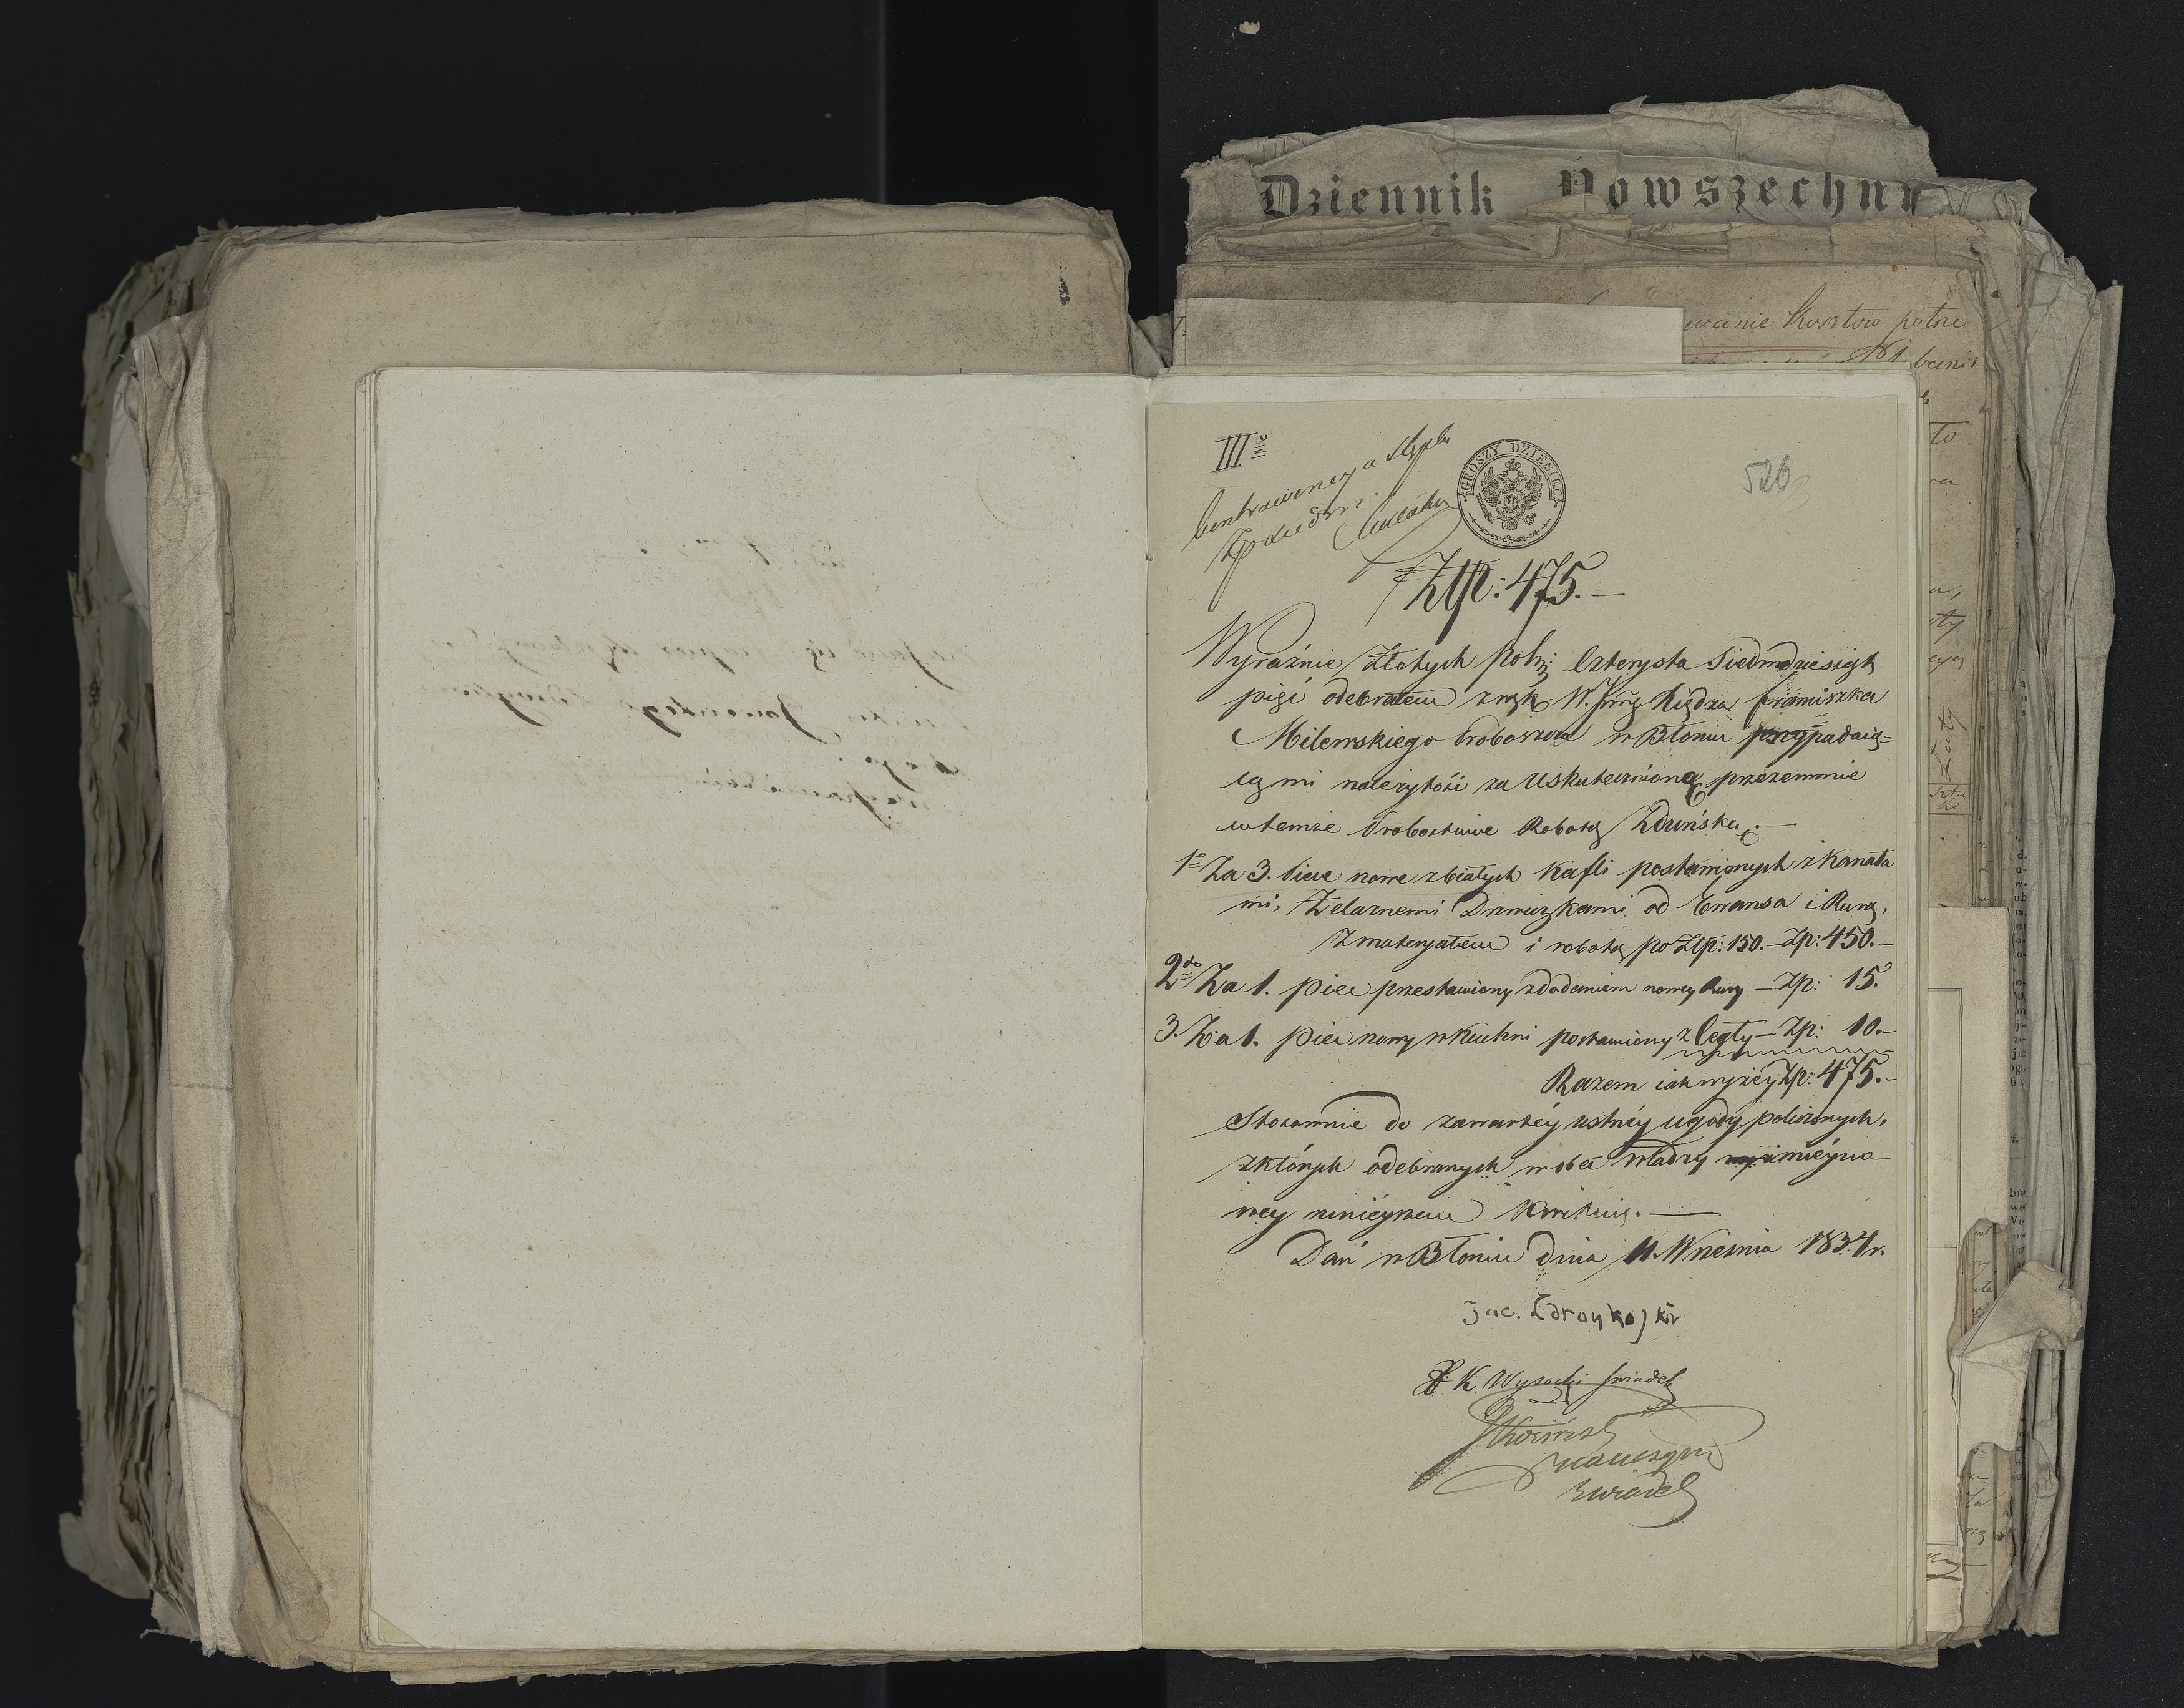 Dziennik Powszechny
wanie Kosztów
IIIº
GROSZY DZIESIĘĆ
526
Złp: 475.—
Wyraźnie Złotych Pols: Czterysta Siedmdziesiąt
pięć odebrałem z rąk W. Jmę Xiędza Franciszka
Milewskiego Proboszcza w Błoniu przypadaią=
cą mi należytość za Uskutecznioną przezemnie
wtemże Probostwie Robotę Zduńską.—
1º Za 3. Piece nowe z białych Kafli postawionych z Kanała
mi, Żelaznemi Drzwiczkami od Ewansa i Rurą,
Z materyałem i robotą po Złp: 150.— Zp: 450.—
2do Za 1. piec przestawiony z dodaniem nowey Rury — Zp: 15.
3. Za 1. piec nowy w Kuchni postawiony z Cegły — Zp: 10.—
Razem iak wyżéy Zp: 475.—
Stosownie do zawartéy ustnéy ugody policzonych,
z których odebranych wobec Władzy mieysco
wey ninieyszem Kwituię.—
Dań w Błoniu dnia 11. Września 1834 r.
Jac. Zdroykoski
K. Wysocki świadek
świadek